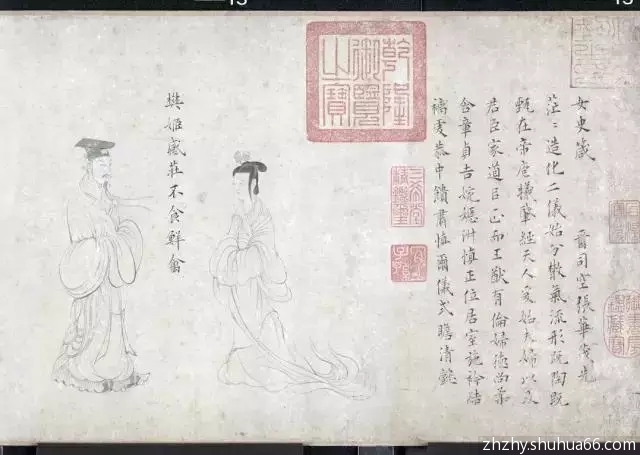 女史箴　晉司空張華茂先
茫〻造化二儀始分散氣流形既陶既
甄在帝庖犧肇經天人爰始夫婦以及
君臣家道以正而王猷有倫婦德尚柔
含章貞吉婉嫕淑慎正位居室施衿結
褵虔恭中饋肅慎爾儀式瞻清懿
乾隆
御覽
之寶
三希堂
精鑑璽
宜子孫
樊姬感莊不食鮮禽
zhzhy.shuhua66.com